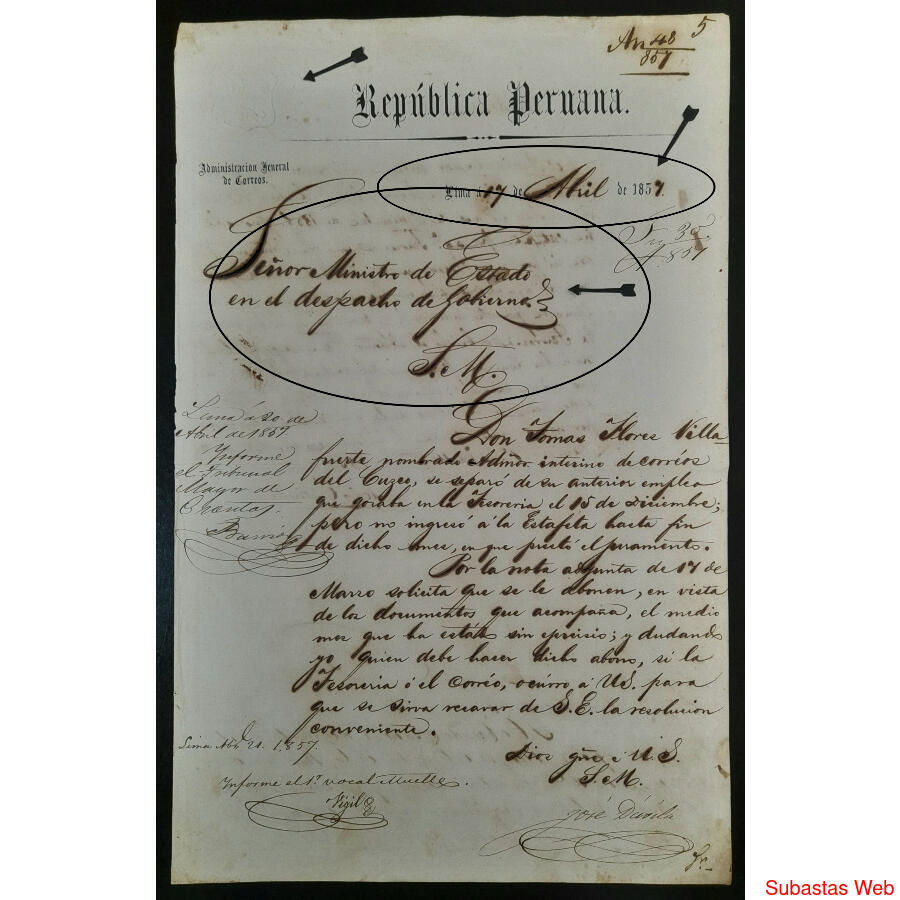 5
An 48
857
República Peruana.
Administracion Jeneral
de Correos.
Lima á 17 de Abril de 1857.
35.
A. 857
Señor Ministro de Estado
en el despacho de Gobierno
S. M.
Lima á 20 de
Abril de 1857
Informe
el Tribunal
Mayor de
Cuentas.
Don Tomas Flores Villa
fuerte nombrado Admõr interino de corréos
del Cuzco, se separó de su anterior empleo
que gozaba en la Tesoreria el 15 de Diciembre;
pero no ingresó á la Estafeta hasta fin
de dicho mes, en que prestó el juramento.
Por la nota adjunta de 17 de
Marzo solicita que se le abonen, en vista
de los documentos que acompaña, el medio
mes que ha estado sin ejercisio; y dudando
yo quien debe hacer dicho abono, si la
Tesoreria ó el Corréo, ocurro á U.S. para
que se sirva recavar de S.E. la resolucion
conveniente.
Lima Abl. 21. 1857.
Dios gũe á U.S.
S. M.
Informe el 1º vocal Muelle.
Vigil
José Dávila
Subastas Web